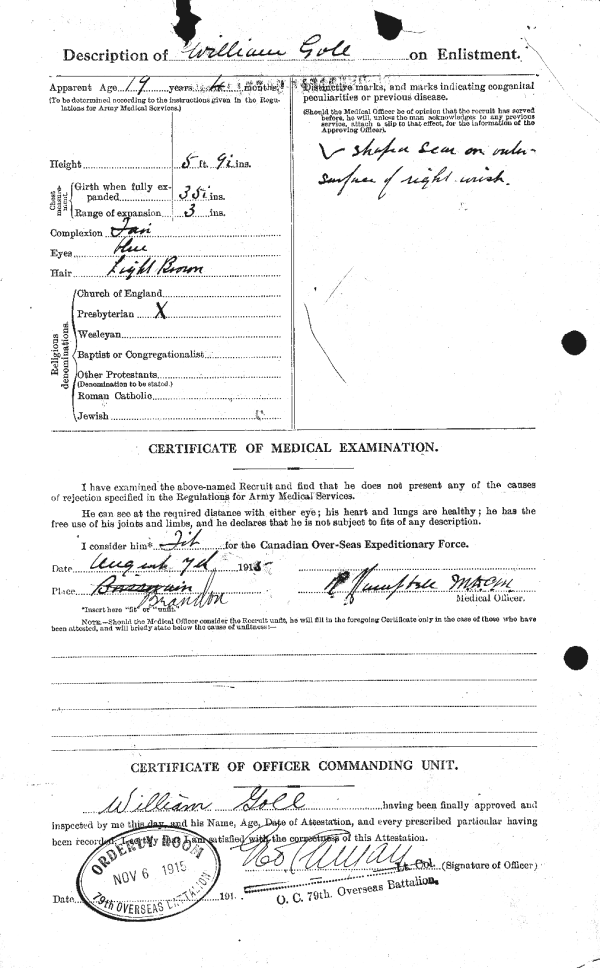 Description of William Gole on Enlistment.
Apparent Age 19 years 4 months.
(To be determined according to the instructions given in the Regu-
lations for Army Medical Services.)
Height 5 ft. 9½ ins.
Chest measure-ment.
Girth when fully ex-
panded 35½ ins.
Range of expansion 3 ins.
Complexion Fair
Eyes blue
Hair Light Brown
Religious denominations.
Church of England
Presbyterian X
Wesleyan
Baptist or Congregationalist
Other Protestants
(Denomination to be stated.)
Roman Catholic
Jewish
Distinctive marks, and marks indicating congenital
peculiarities or previous disease.
(Should the Medical Officer be of opinion that the recruit has served
before, he will, unless the man acknowledges to any previous
service, attach a slip to that effect, for the information of the
Approving Officer).
V shaped scar on outer
surface of right wrist.
CERTIFICATE OF MEDICAL EXAMINATION.
I have examined the above-named Recruit and find that he does not present any of the causes
of rejection specified in the Regulations for Army Medical Services.
He can see at the required distance with either eye; his heart and lungs are healthy; he has the
free use of his joints and limbs, and he declares that he is not subject to fits of any description.
I consider him* Fit for the Canadian Over-Seas Expeditionary Force.
Date August 7th 1915
Place Brandon
Medical Officer.
*Insert here "fit" or "unfit."
NOTE.—Should the Medical Officer consider the Recruit unfit, he will fill in the foregoing Certificate only in the case of those who have
been attested, and will briefly state below the cause of unfitness:—
CERTIFICATE OF OFFICER COMMANDING UNIT.
William Gole having been finally approved and
inspected by me this day, and his Name, Age, Date of Attestation, and every prescribed particular having
been recorded, I certify that I am satisfied with the correctness of this Attestation.
Lt. Col. (Signature of Officer)
O. C. 79th. Overseas Battalion.
Date 191
ORDERLY ROOM
NOV 6 1915
79th OVERSEAS BATTALION